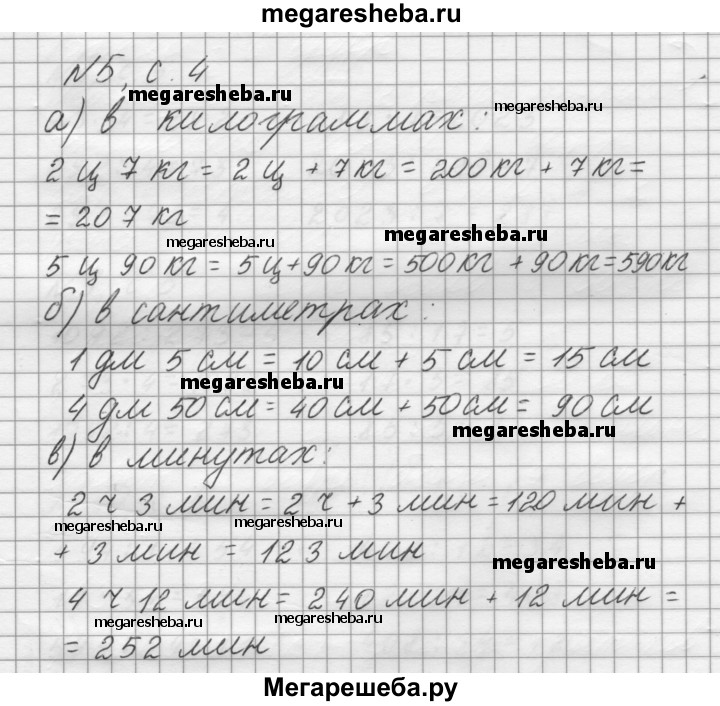 megaresheba.ru
№5, с. 4
megaresheba.ru
а) в килограммах:
megaresheba.ru
2 ц 7 кг = 2 ц + 7 кг = 200 кг + 7 кг =
= 207 кг
megaresheba.ru
megaresheba.ru
5 ц 90 кг = 5 ц + 90 кг = 500 кг + 90 кг = 590 кг
б) в сантиметрах:
1 дм 5 см = 10 см + 5 см = 15 см
megaresheba.ru
4 дм 50 см = 40 см + 50 см = 90 см
megaresheba.ru
в) в минутах:
2 ч 3 мин = 2 ч + 3 мин = 120 мин +
megaresheba.ru
megaresheba.ru
+ 3 мин = 123 мин
megaresheba.ru
4 ч 12 мин = 240 мин + 12 мин =
megaresheba.ru
megaresheba.ru
= 252 мин
Мегарешеба.ру